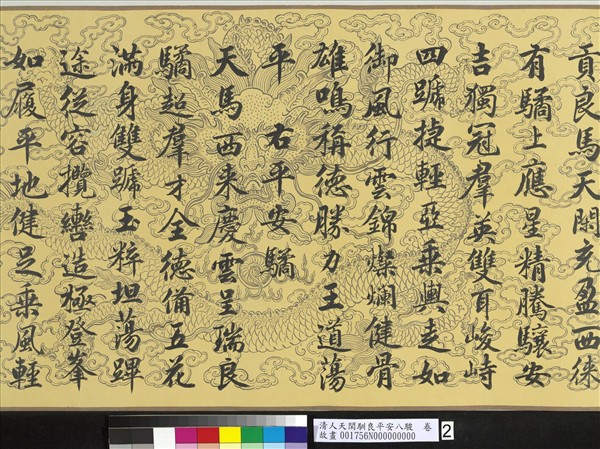 貢良馬天閑充盈西徠
有驈上應星精騰驤安
吉獨冠羣英雙耳峻峙
四蹏捷輕亞乘輿走如
御風行雲錦燦爛健骨
雄鳴稱德勝力王道蕩
平 右平安驈
天馬西来慶雲呈瑞良
驈超羣才全德備五花
滿身雙蹏玉粹坦蕩蹕
途從容攬轡造極登峯
如履平地健足乘風輕
清人天閑馴良平安八駿 卷
故畫 001756N000000000
2